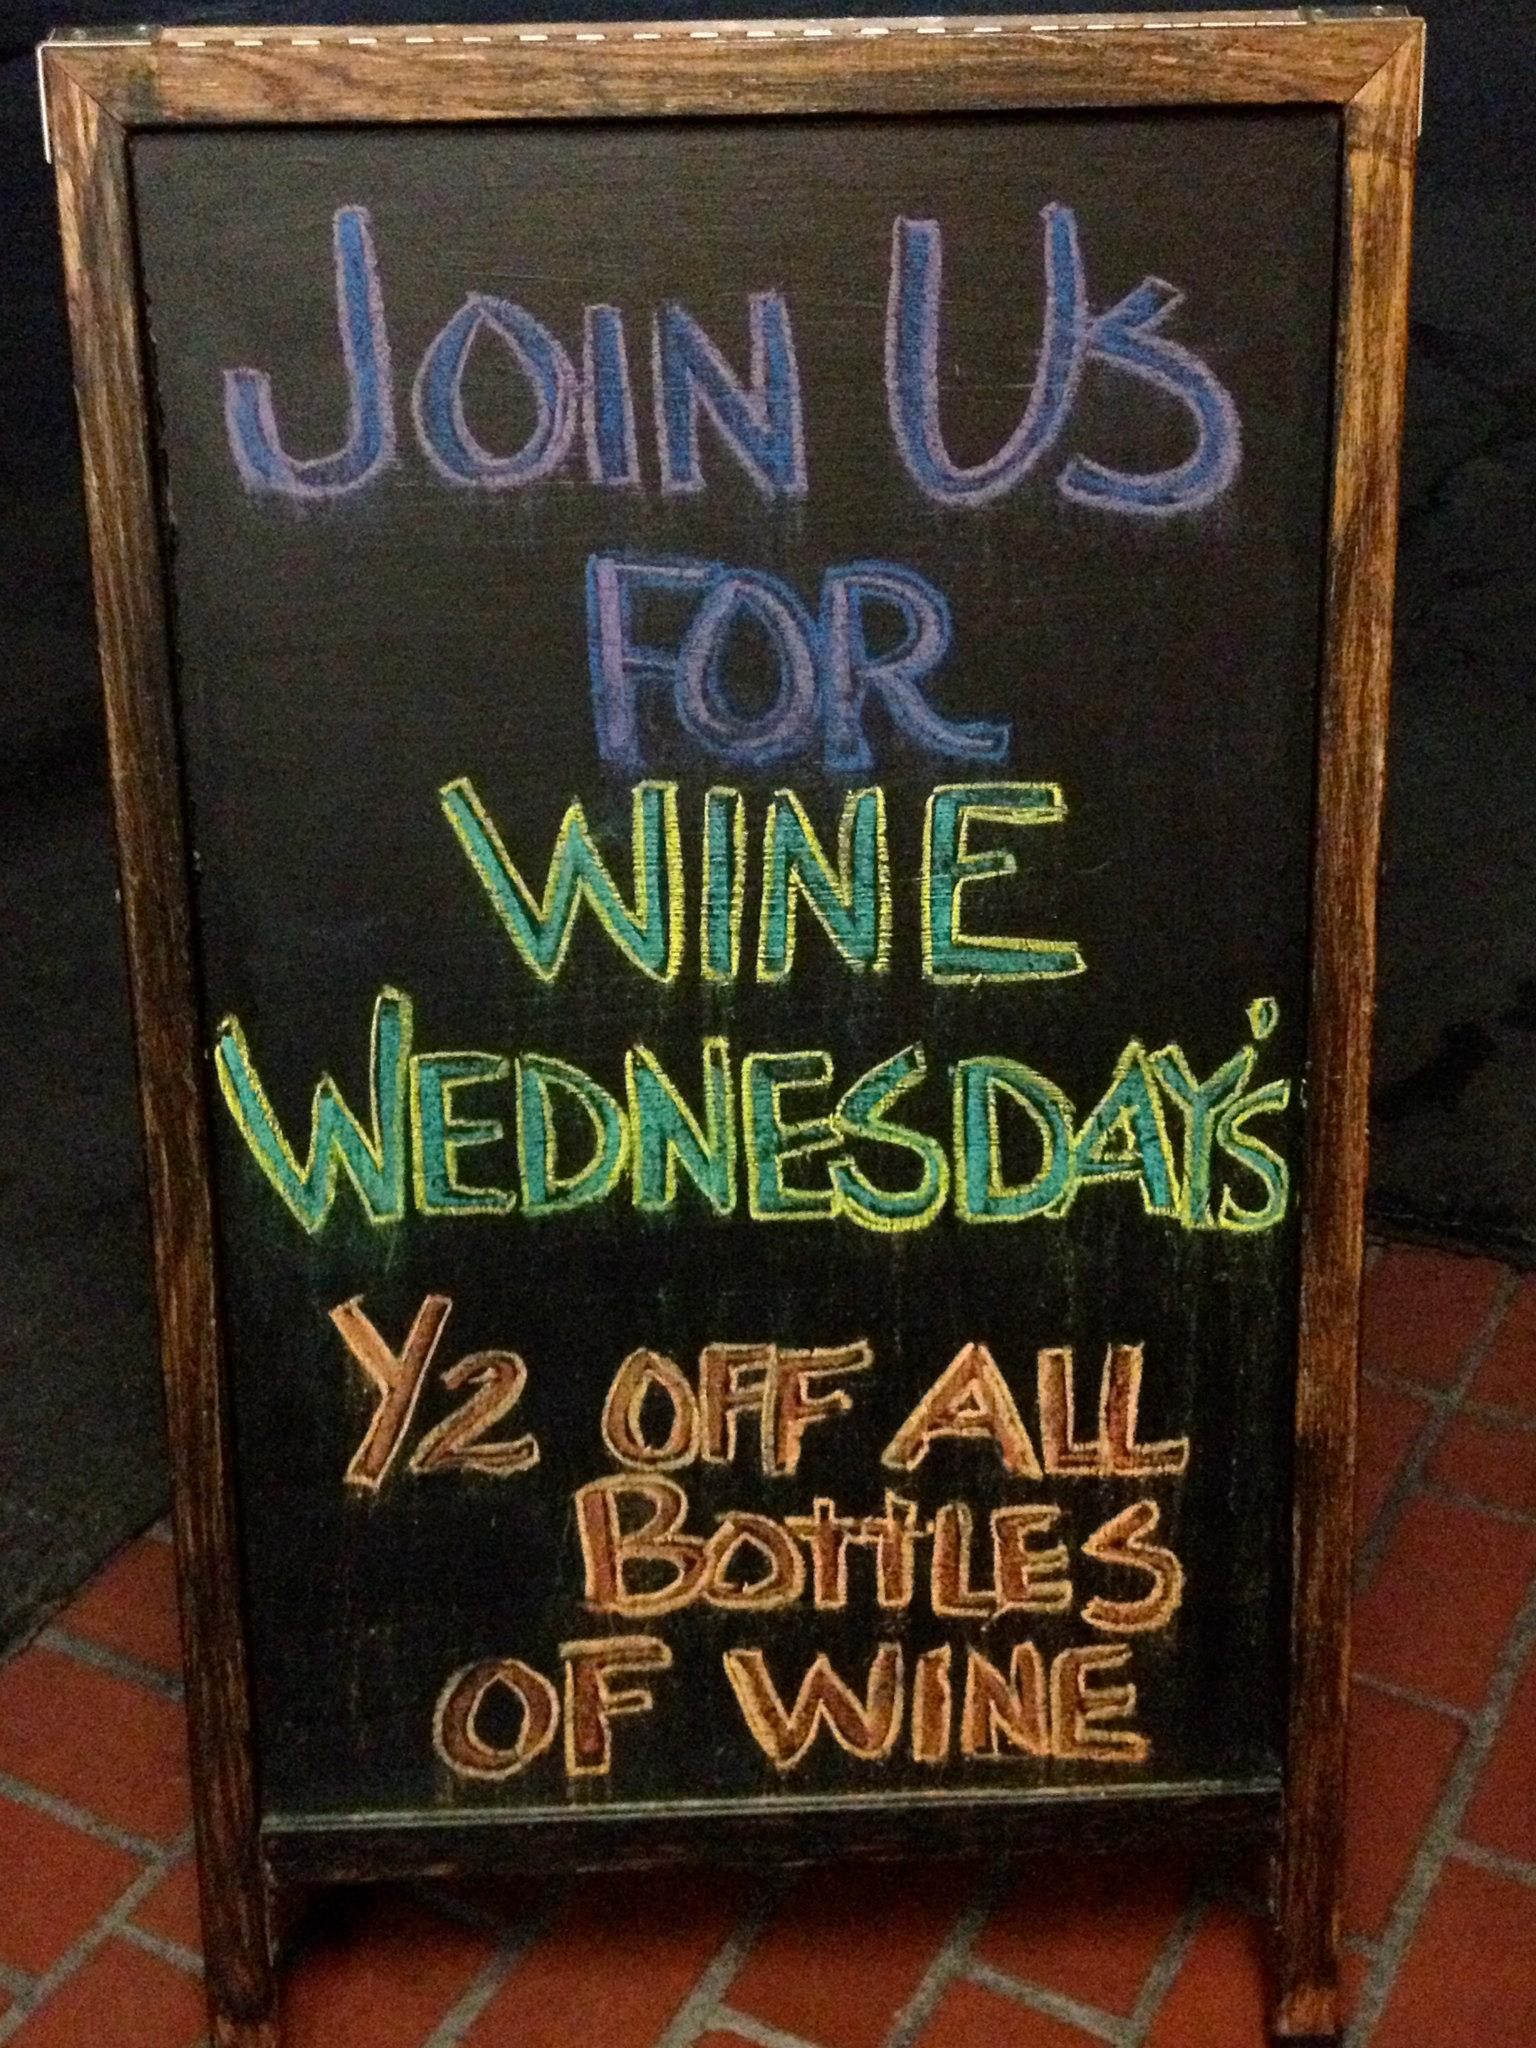 JOIN US
FOR
WINE
WEDNESDAY'S
1/2 OFF ALL
BOTTLES
OF WINE